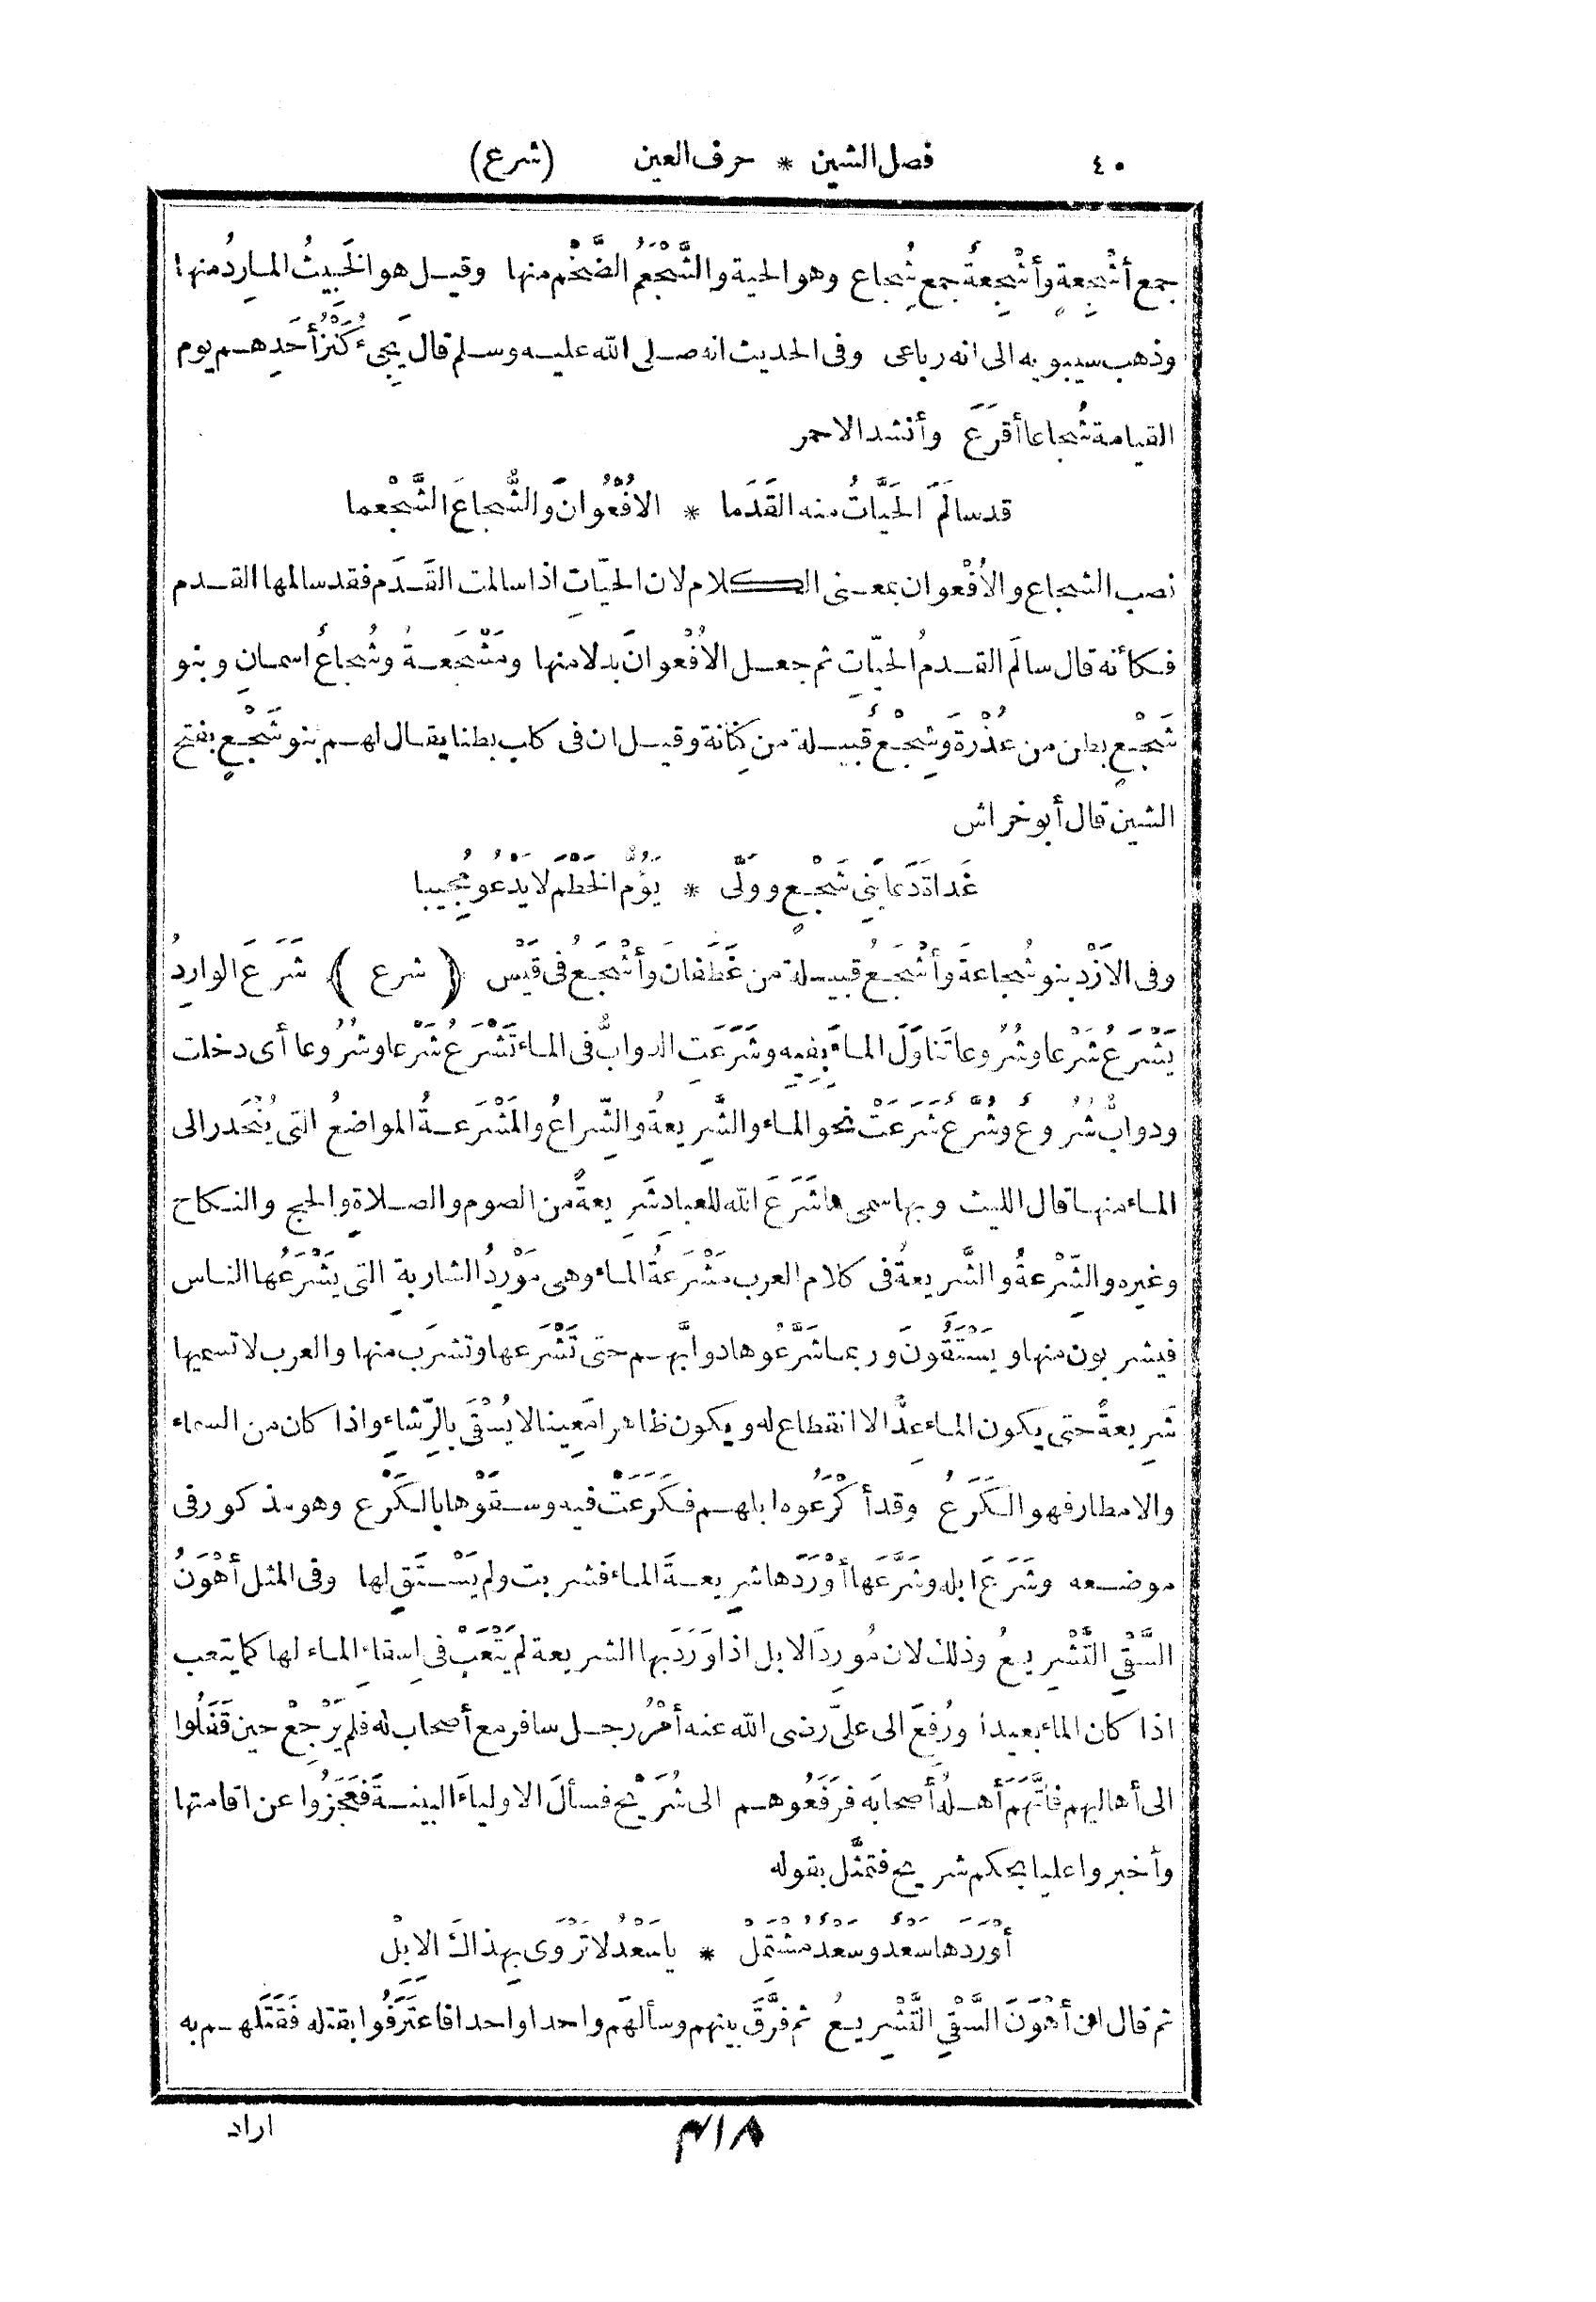 ٤٠ فصل الشين * حرف العين (شرع)
جمع أشْجِعةٍ وأشْجِعةُ جمع شُِجاع وهو الحية والشَّجْعَمُ الضَّخْم منها وقيل هو الخَبيثُ الماردُ منها
وذهب سيبويه الى انه رباعى وفى الحديث انه صلى الله عليه وسلم قال يَجِىءُ كَنْزُ أحَدِهم يوم
القيامة شُجاعا أقرَعَ وأنشد الاحمر
قد سالَمَ الحَيَّاتُ منه القَدَما * الاُفْعُوانَ والشُّجاعَ الشَّجْعما
نصب الشجاع والاُفْعوان بمعنى الكلام لان الحيّاتِ اذا سالمت القَدَم فقد سالمها القدم
فكأنه قال سالَمَ القدمُ الحيّاتِ ثم جعل الاُفْعوانَ بدلا منها ومَشْجَعةُ وشُجاعُ اسمانِ وبنو
شَجْعٍ بطن من عُذْرةَ وشِجْعُ قبيلة من كِنانة وقيل ان فى كلب بطنا يقال لهم بنو شَجْعٍ بفتح
الشين قال أبو خراش
غَداةَ دَعا بَنِى شَجْعٍ ووَلَّى * يَؤُمُّ الخَطْمَ لا يَدْعو مُجِيبا
وفى الاَزْدِ بنو شُجاعةَ وأشْجَعُ قبيلة من غَطَفانَ وأشْجَعُ فى قَيْس (شرع) شَرَعَ الوارِدُ
يَشْرَعُ شَرْعا وشُرُوعا تَناوَلَ الماءَ بِفِيه وشَرَعَتِ الدوابُّ فى الماء تَشْرَعُ شَرْعا وشُرُوعا أى دخلت
ودوابُّ شُرُوعٌ وشُرَّعٌ شَرَعَتْ نحو الماء والشَّرِيعةُ والشِّراعُ والمَشْرَعةُ المواضعُ التى يُنْحَدر الى
الماء منها قال الليث وبها سمى ما شَرَعَ الله للعباد شَرِيعةً من الصوم والصلاةِ والحج والنكاح
وغيره والشِّرْعةُ والشَّريعةُ فى كلام العرب مَشْرَعةُ الماء وهى مَوْرِدُ الشاربة التى يَشْرَعُها الناس
فيشربون منها ويَسْتَقُونَ وربما شَرَّعُوها دوابَّهم حتى تَشْرَعها وتشرَب منها والعرب لا تسميها
شَرِيعةً حتى يكون الماء عِدًّا لا انقطاع له ويكون ظاهرا مَعِينا لا يُسْقَى بالرِّشاءِ واذا كان من السماء
والامطار فهو الكَرَعُ وقد أكْرَعُوه ابلهم فكَرَعَتْ فيه وسقَوْها بالكَرْع وهو مذكور فى
موضعه وشَرَعَ ابله وشَرَّعَها أوْرَدَها شرِيعةَ الماء فشربت ولم يَسْتَقِ لها وفى المثل أهْوَنُ
السَّقْىِ التَّشْرِيعُ وذلك لان مُورِدَ الابل اذا وَرَدَ بها الشريعة لم يَتْعَبْ فى اِسقاءِ الماء لها كما يتعب
اذا كان الماء بعيدا ورُفِعَ الى علىّ رضى الله عنه أمْرُ رجل سافر مع أصحاب له فلم يَرْجِعْ حين قَفَلُوا
الى أهاليهم فاتَّهَمَ أهلُه أصحابَه فرَفَعُوهم الى شُرَيْح فسألَ الاولياءَ البينةَ فعَجَزُوا عن اقامتها
وأخبروا عليا بحكم شريح فتمثَّل بقوله
أوْرَدَها سَعْدٌ وسعدٌ مُشْتَمِلْ * يا سَعْدُ لا تَرْوَى بِهذاكَ الابِلْ
ثم قال ان أهْوَنَ السَّقْىِ التَّشْرِيعُ ثم فرَّقَ بينهم وسألهم واحدا واحدا فاعتَرَفُوا بقتله فقَتَلهم به
اراد
٣١٨